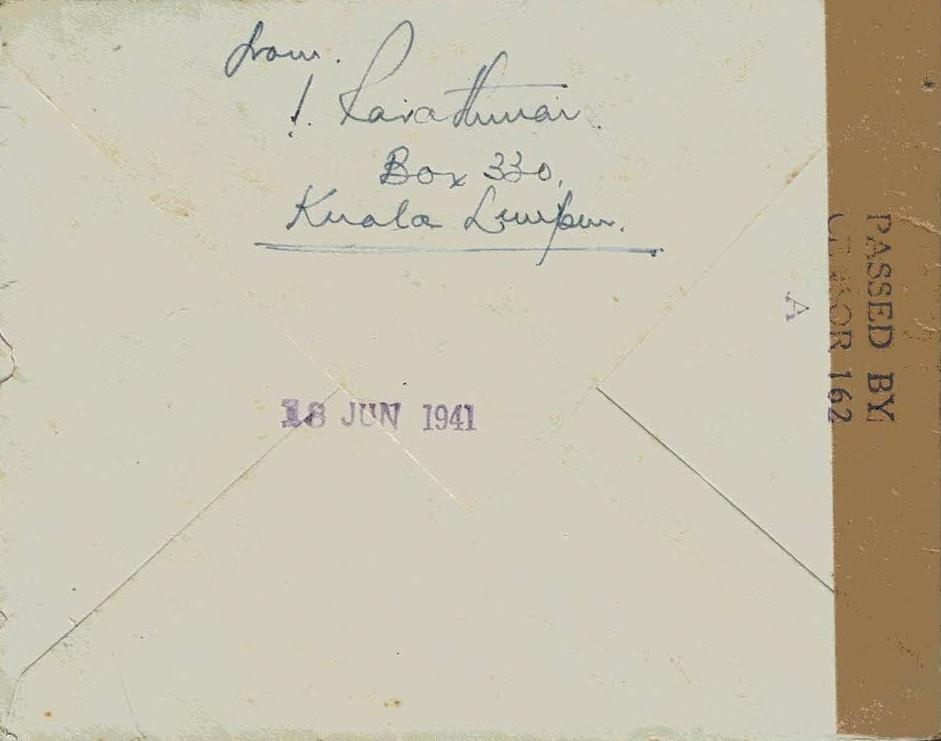 from.
Box 330,
Kuala Lumpur.
18 JUN 1941
PASSED BY
CENSOR 162
A